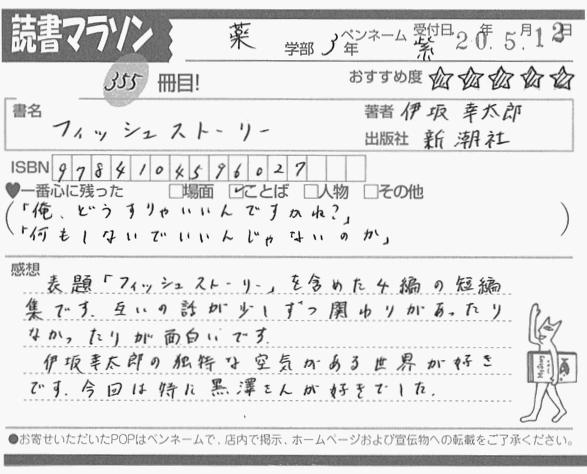 読書マラソン
薬 学部 3年 ペンネーム 紫 受付日 20年 5月 12日
355 冊目! おすすめ度 ☆☆☆☆☆
書名 フィッシュストーリー
著者 伊坂 幸太郎
出版社 新潮社
ISBN 9784104596027
♥一番心に残った □場面 ☑ことば □人物 □その他
(「俺、どうすりゃいいんですかね?」
「何もしないでいいんじゃないのか」)
感想
表題「フィッシュストーリー」を含めた4編の短編
集です。互いの話が少しずつ関わりがあったり
なかったりが面白いです。
伊坂幸太郎の独特な空気がある世界が好き
です。今回は特に黒澤さんが好きでした。
●お寄せいただいたPOPはペンネームで、店内で掲示、ホームページおよび宣伝物への転載をご了承ください。